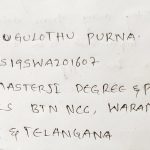 UGULOTHU PURNA
S19SWA201607
MASTERJI DEGREE & P
LS BTN NCC, WARAN
& TELANGANA